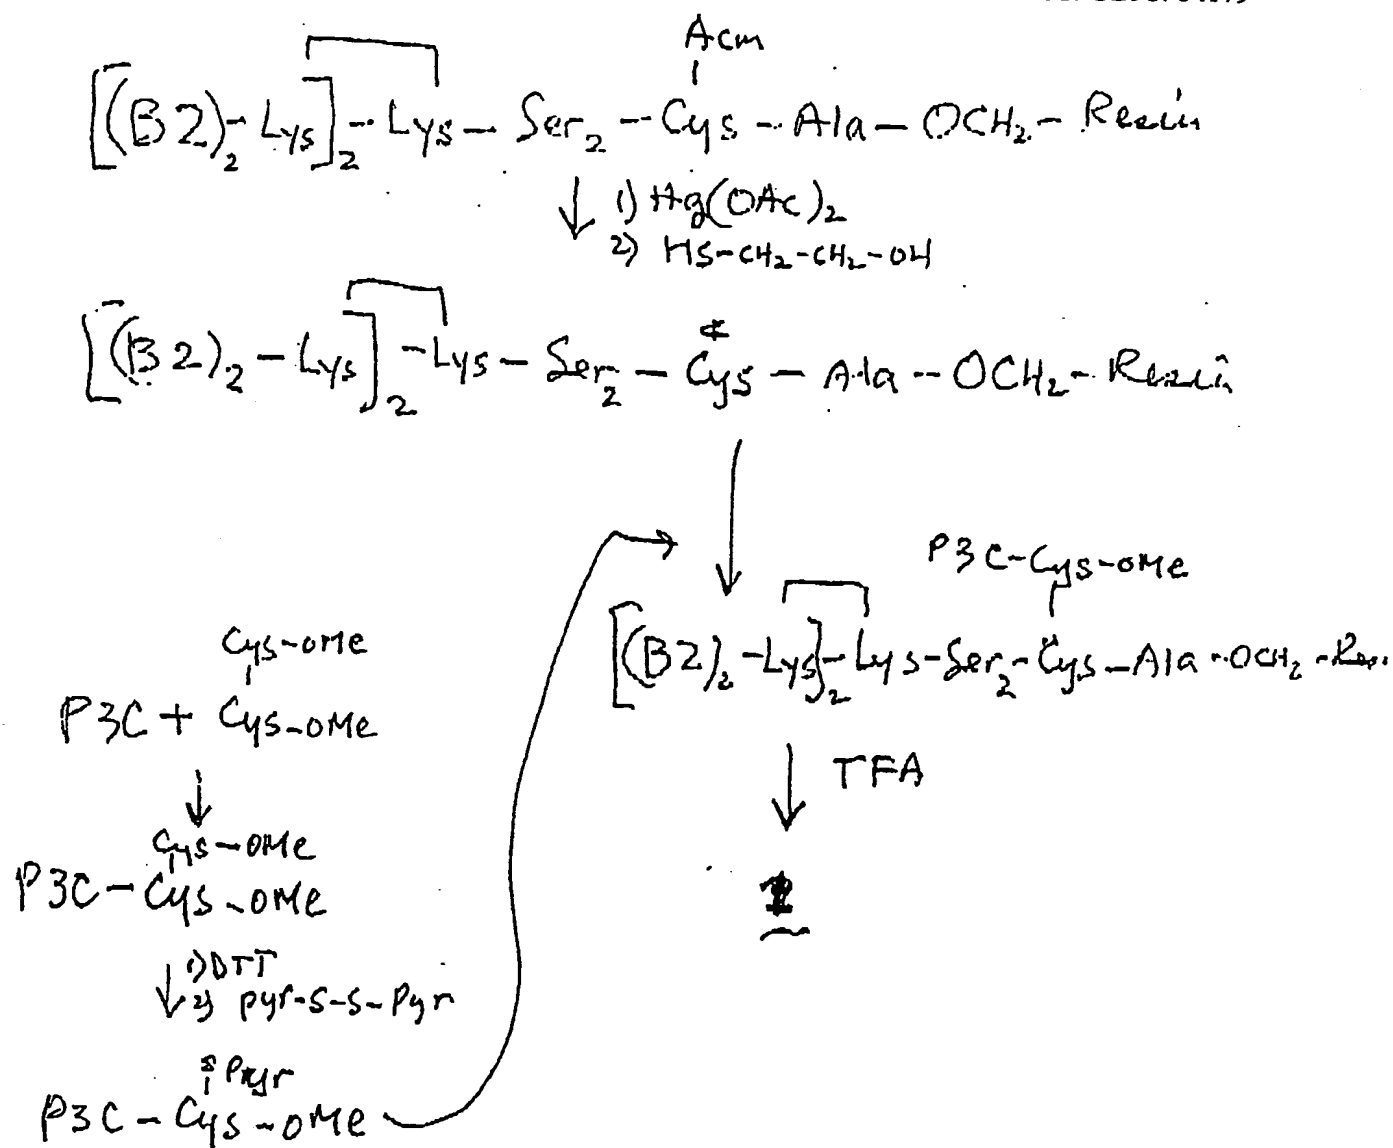 Acm
[(B2)2-Lys]2-Lys-Ser2-Cys-Ala-OCH2-Resin
1) Hg(OAc)2
2) HS-CH2-CH2-OH
[(B2)2-Lys]2-Lys-Ser2-Cys-Ala-OCH2-Resin
P3C-Cys-OMe
[(B2)2-Lys]2-Lys-Ser2-Cys-Ala-OCH2-
TFA
1
Cys-OMe
P3C + Cys-OMe
Cys-OMe
P3C-Cys-OMe
1) DTT
2) pyr-S-S-Pyr
S Pyr
P3C-Cys-OMe